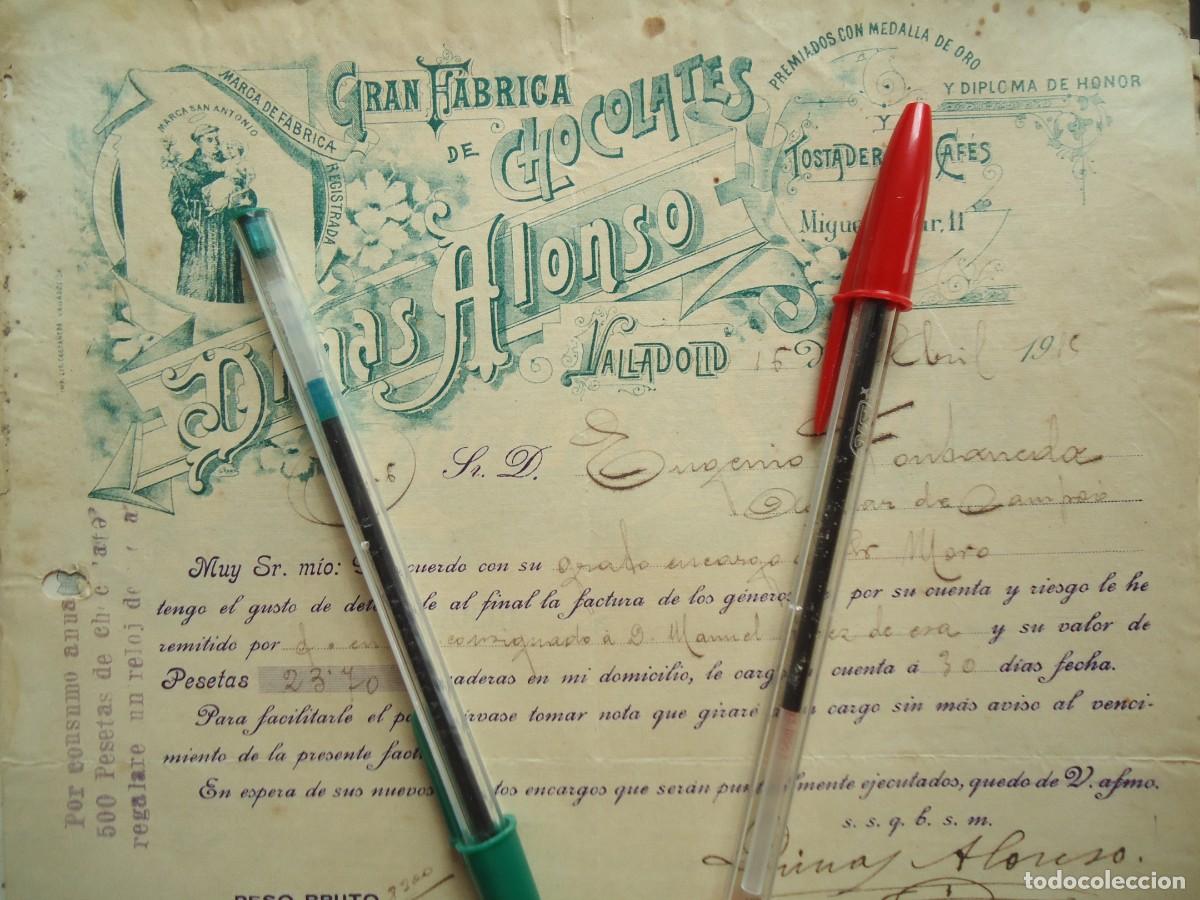 MARCA DE FABRICA REGISTRADA
MARCA SAN ANTONIO
GRAN FÁBRICA
DE CHOCOLATES
PREMIADOS CON MEDALLA DE ORO
Y DIPLOMA DE HONOR
Y
CAFÉS
11
Alonso
VALLADOLID 15 Abril 191
Sr. D. Eugenio Fontaneda
de Campóo
Muy Sr. mío: cuerdo con su grato encargo Sr Moro
tengo el gusto de le al final la factura de los géneros por su cuenta y riesgo le he
remitido por consignado á D. Manuel de esa y su valor de
Pesetas 23'70 aderas en mi domicilio, le carg cuenta á 30 días fecha.
Para facilitarle el sírvase tomar nota que giraré cargo sin más aviso al venci-
miento de la presente
En espera de sus nuevos encargos que serán puntualmente ejecutados, quedo de V. afmo.
s. s. q. b. s. m.
Dimas Alonso.
PESO BRUTO
Por consumo anual
500 Pesetas de
regalare un reloj de
todocoleccion